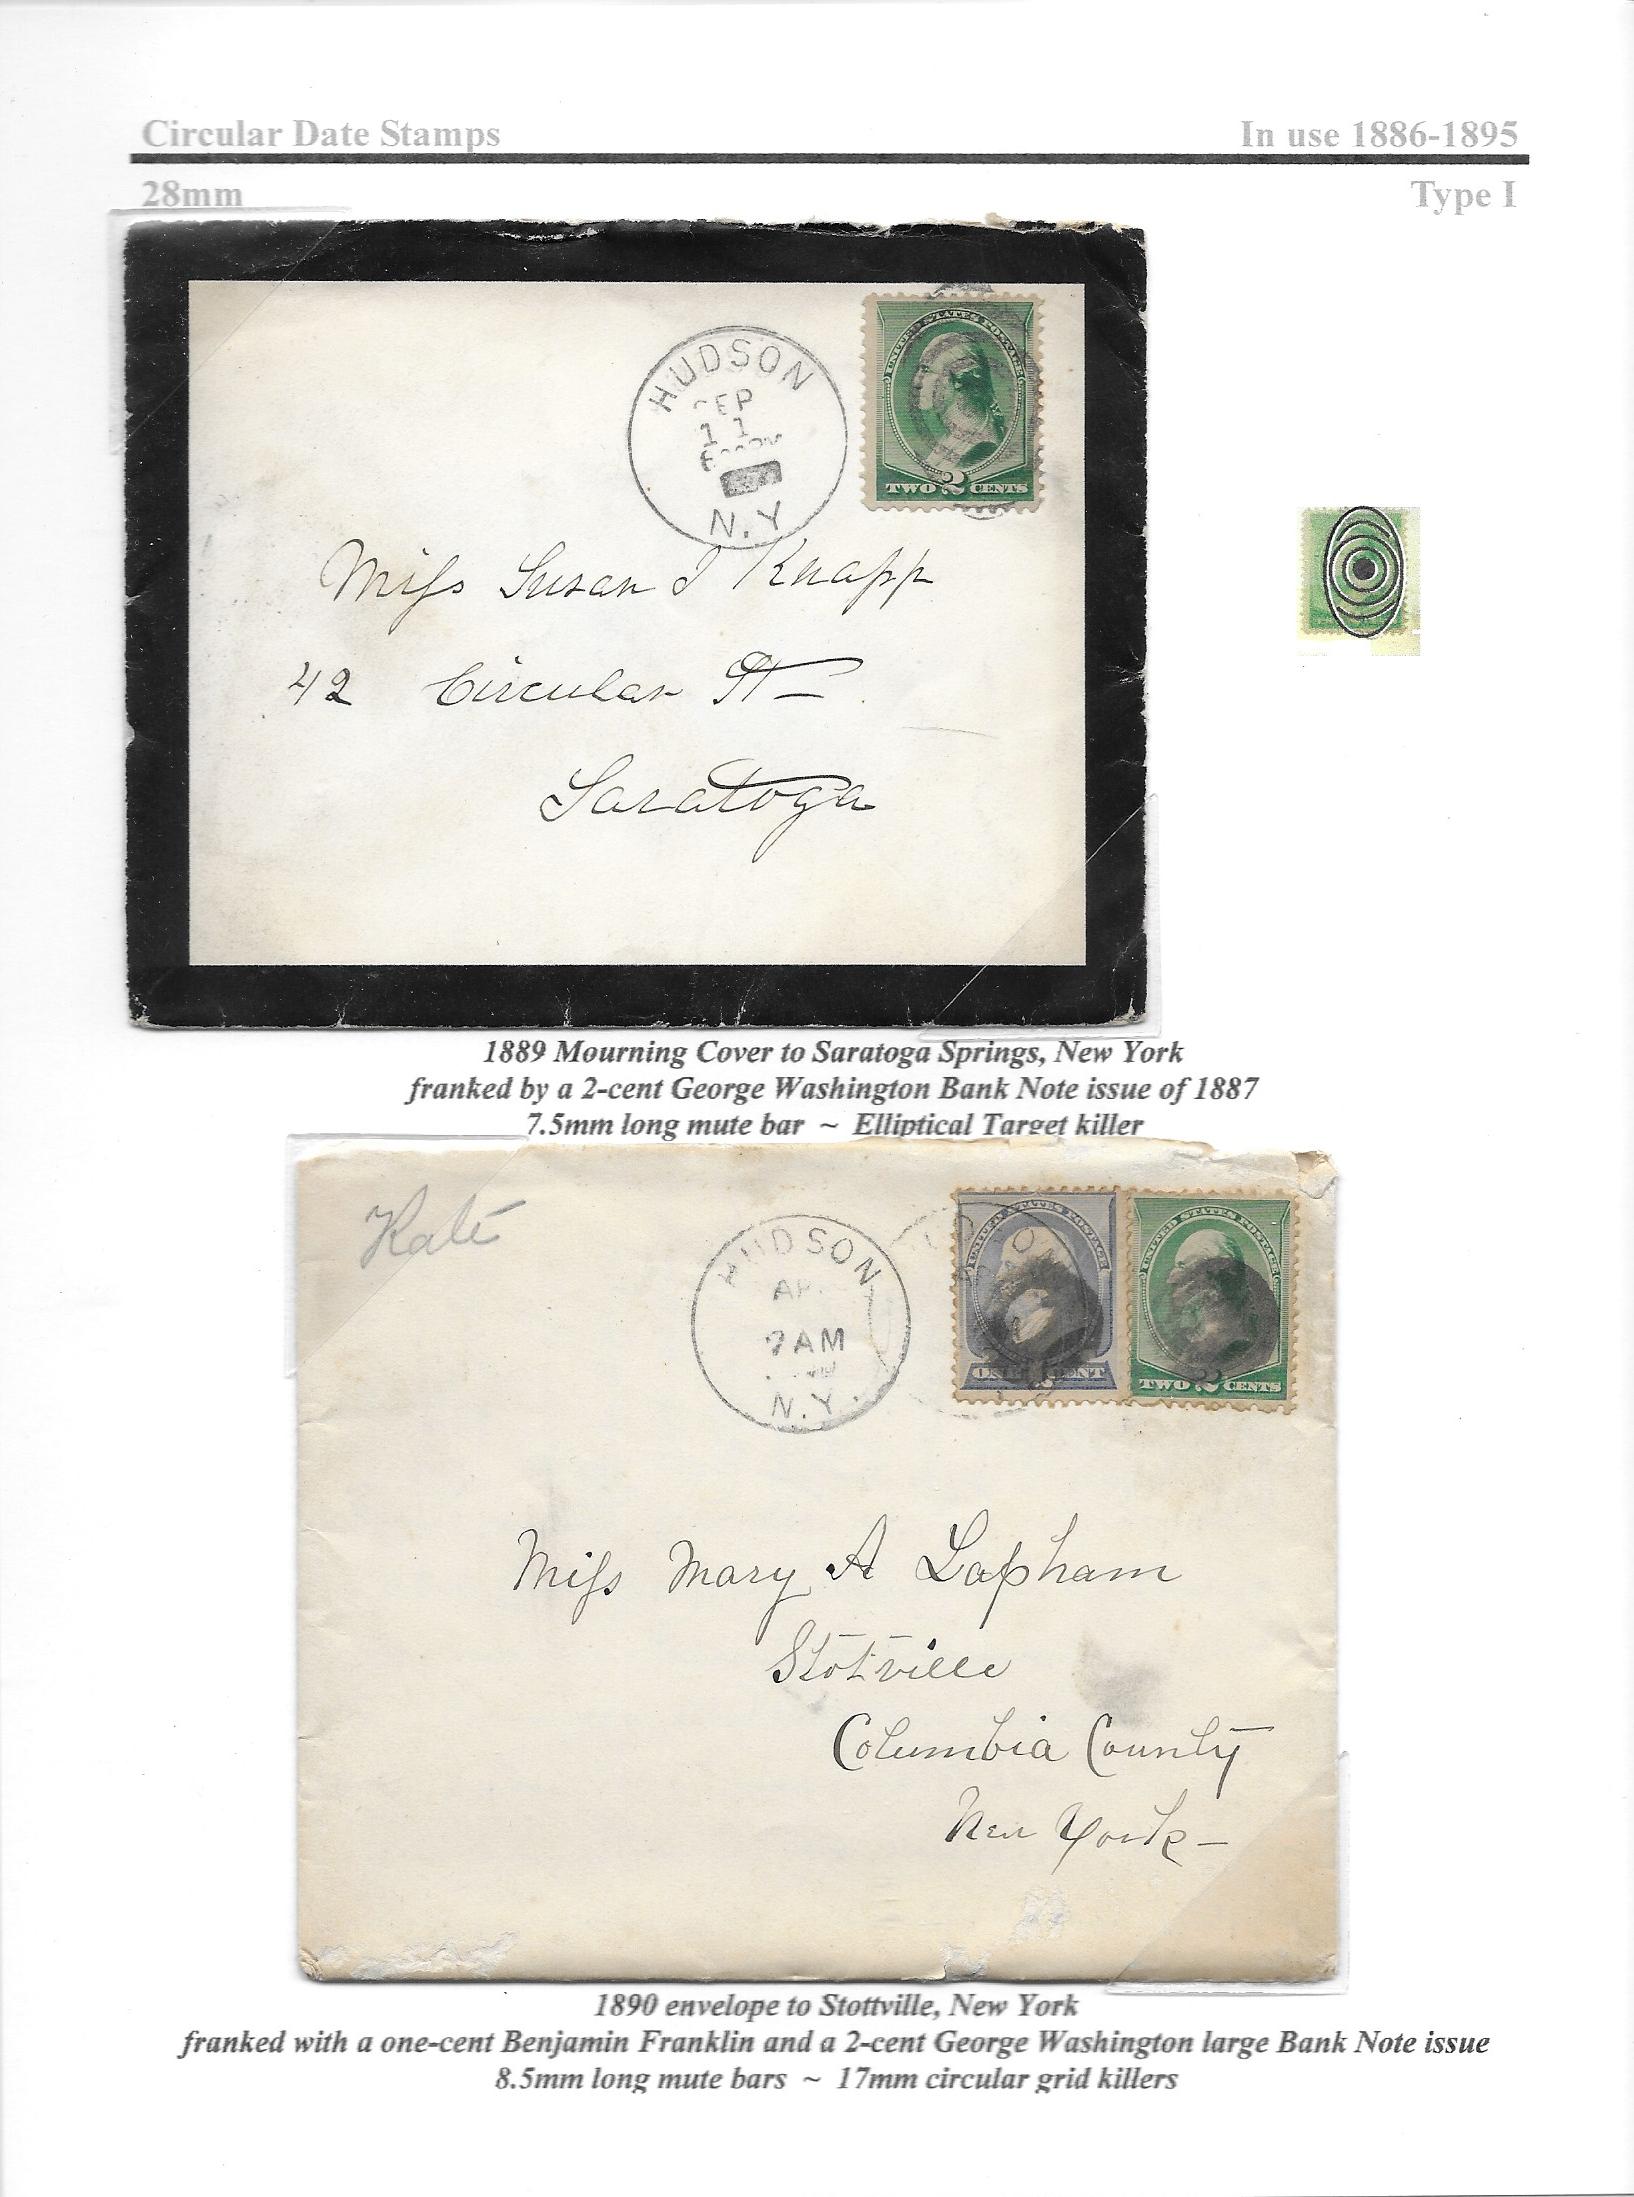 Circular Date Stamps
In use 1886-1895
28mm
Type I
HUDSON
SEP
11
N.Y
UNITED STATES POSTAGE
TWO 2 CENTS
Miss Susan J Knapp
42 Circular St
Saratoga
1889 Mourning Cover to Saratoga Springs, New York
franked by a 2-cent George Washington Bank Note issue of 1887
7.5mm long mute bar ~ Elliptical Target killer
Kate
HUDSON
AP
7 AM
N.Y.
UNITED STATES POSTAGE
ONE CENT
UNITED STATES POSTAGE
TWO 2 CENTS
Miss Mary A Lapham
Stotville
Columbia County
New York
1890 envelope to Stottville, New York
franked with a one-cent Benjamin Franklin and a 2-cent George Washington large Bank Note issue
8.5mm long mute bars ~ 17mm circular grid killers